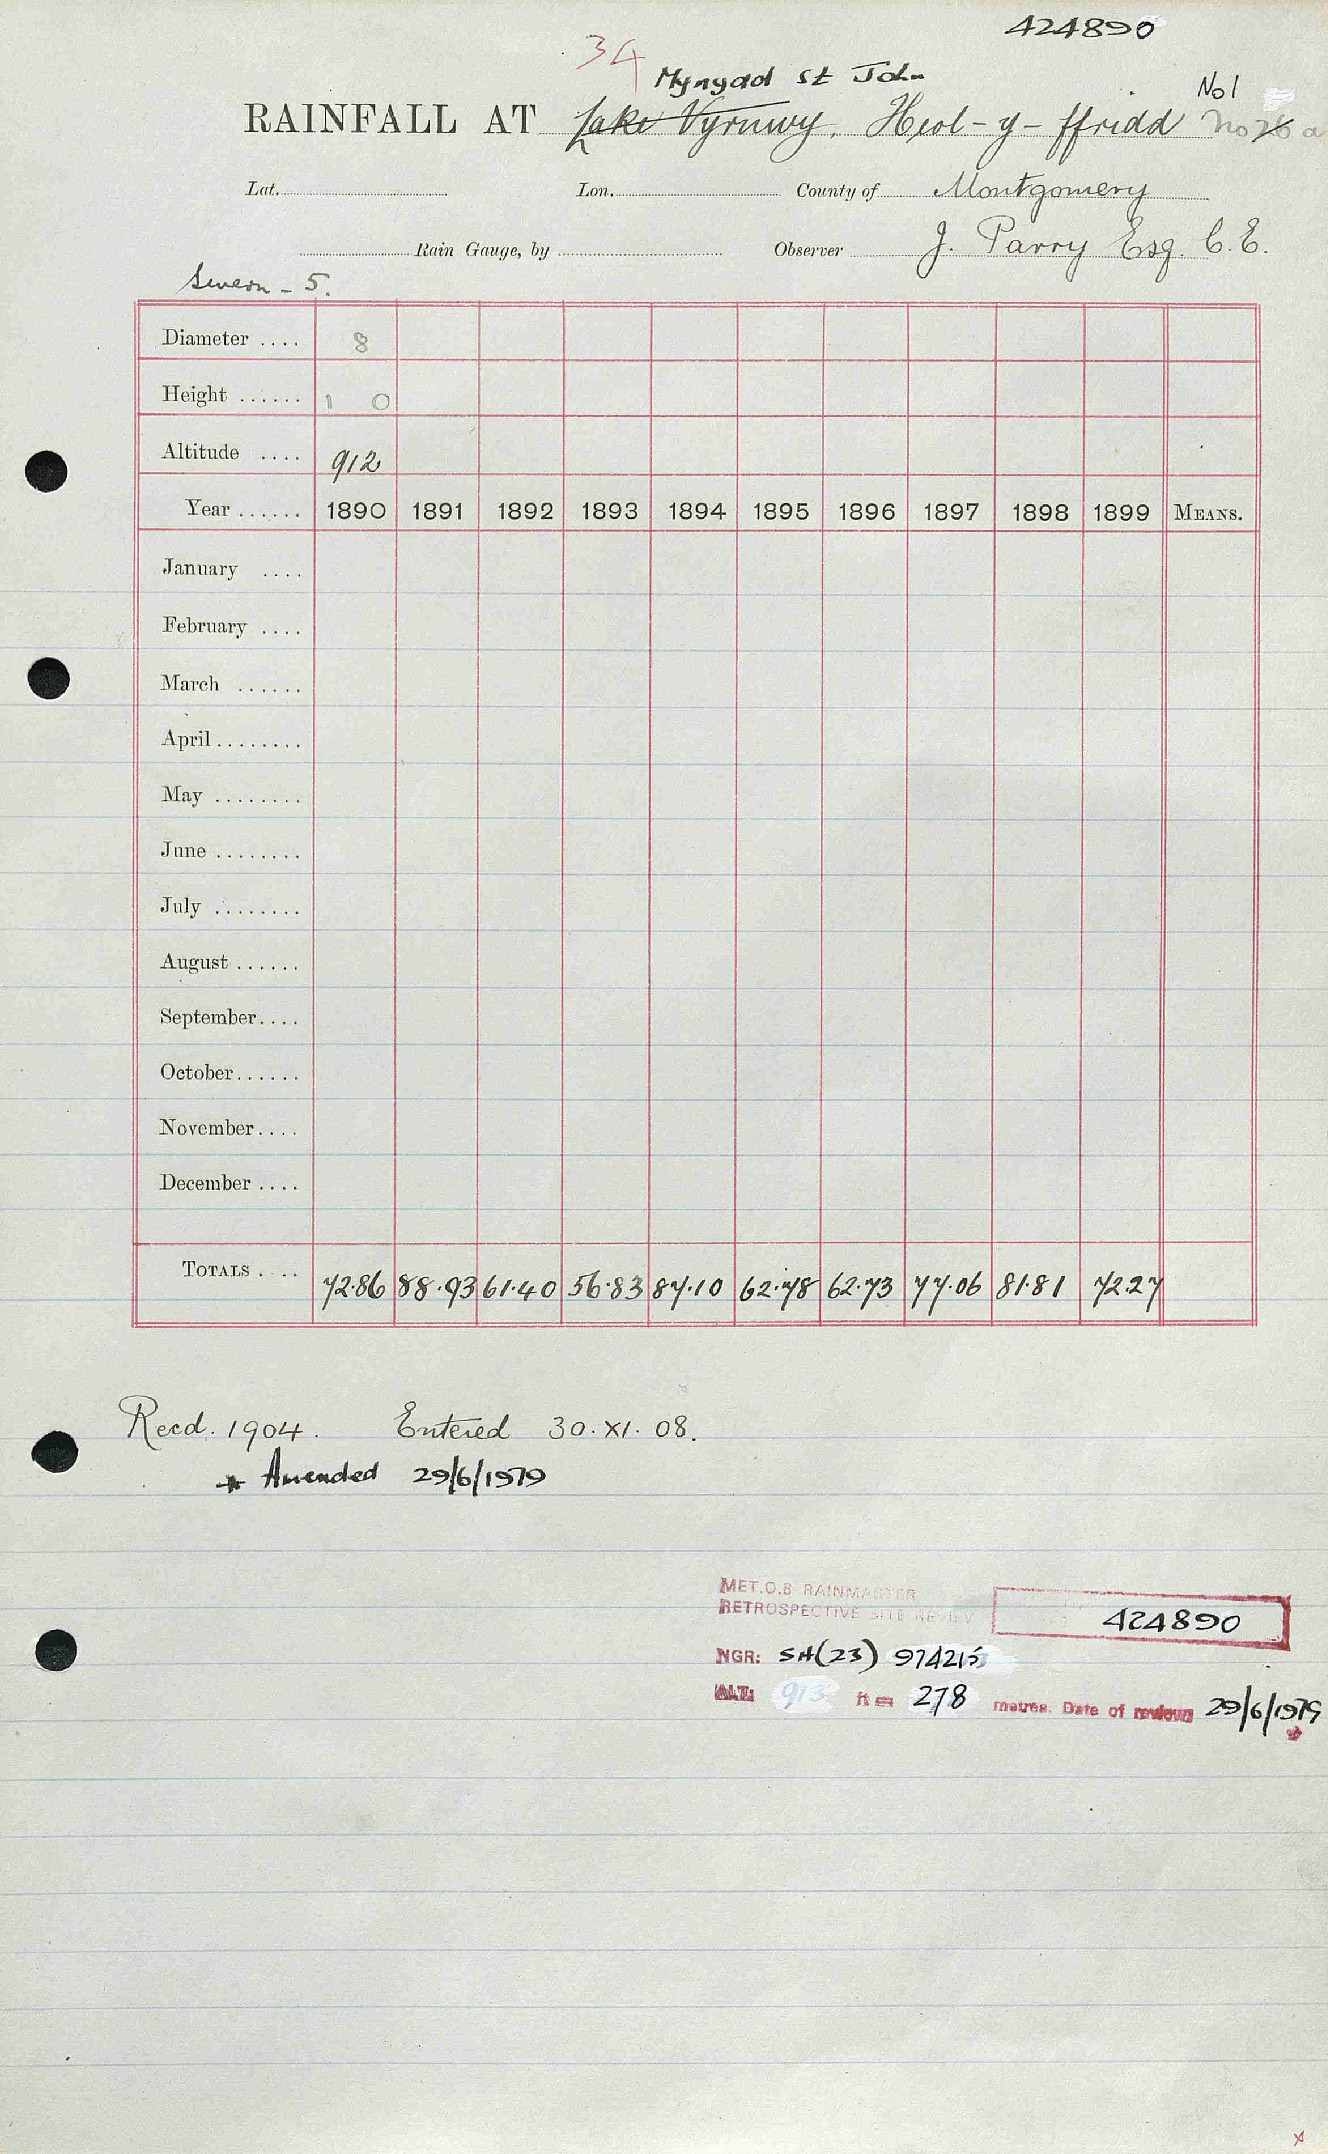 424890
34
Mynydd St John
No 1
RAINFALL AT Lake Vyrnwy. Heol-y-ffridd No
Lat. Lon. County of Montgomery
Rain Gauge, by Observer J. Parry Esq. C.E.
Severn - 5.
Diameter .... 8
Height ...... 1 0
Altitude .... 912
Year ...... 1890 1891 1892 1893 1894 1895 1896 1897 1898 1899 MEANS.
January ....
February ....
March ......
April ........
May ........
June ........
July ........
August ......
September....
October......
November....
December ....
TOTALS .... 72.86 88.93 61.40 56.83 87.10 62.78 62.73 77.06 81.81 72.27
Recd. 1904. Entered 30.XI.08.
* Amended 29/6/1979
MET.O.8 RAINMASTER
RETROSPECTIVE SITE REVIEW 424890
NGR: SH(23) 974215
ALT: 913 ft = 278 metres. Date of review 29/6/1979
*